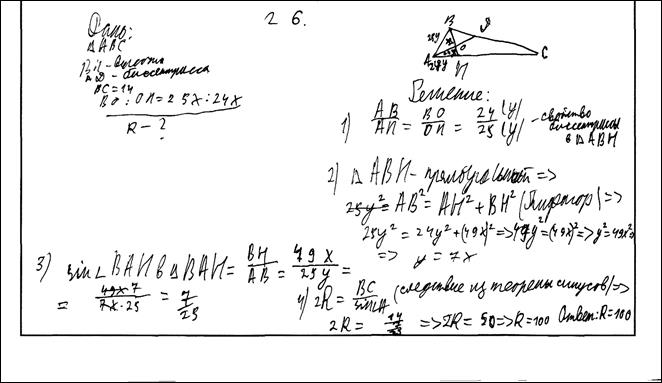 26.
Дано:
△ABC
BH - высота
AD - биссектриса
BC=14
BO:OH=25x:24x
R - ?
B
A
O
H
C
Решение:
1) AB/AH = BO/OH = 24(y)/25(y) - свойство биссектрисы в △ABH
2) △ABH - прямоугольный =>
25y² = AB² = AH² + BH² (Пифагор) =>
25y² = 24y² + (49x)² => 49y² = (49x)² => y² = 49x² =>
=> y = 7x
3) sin∠BAH в △BAH = BH/AB = 49x/25y =
= 49x·7/7x·25 = 7/25
4) 2R = BC/sin∠A (следствие из теоремы синусов) =>
2R = 14/ => 2R = 50 => R=100 Ответ: R=100